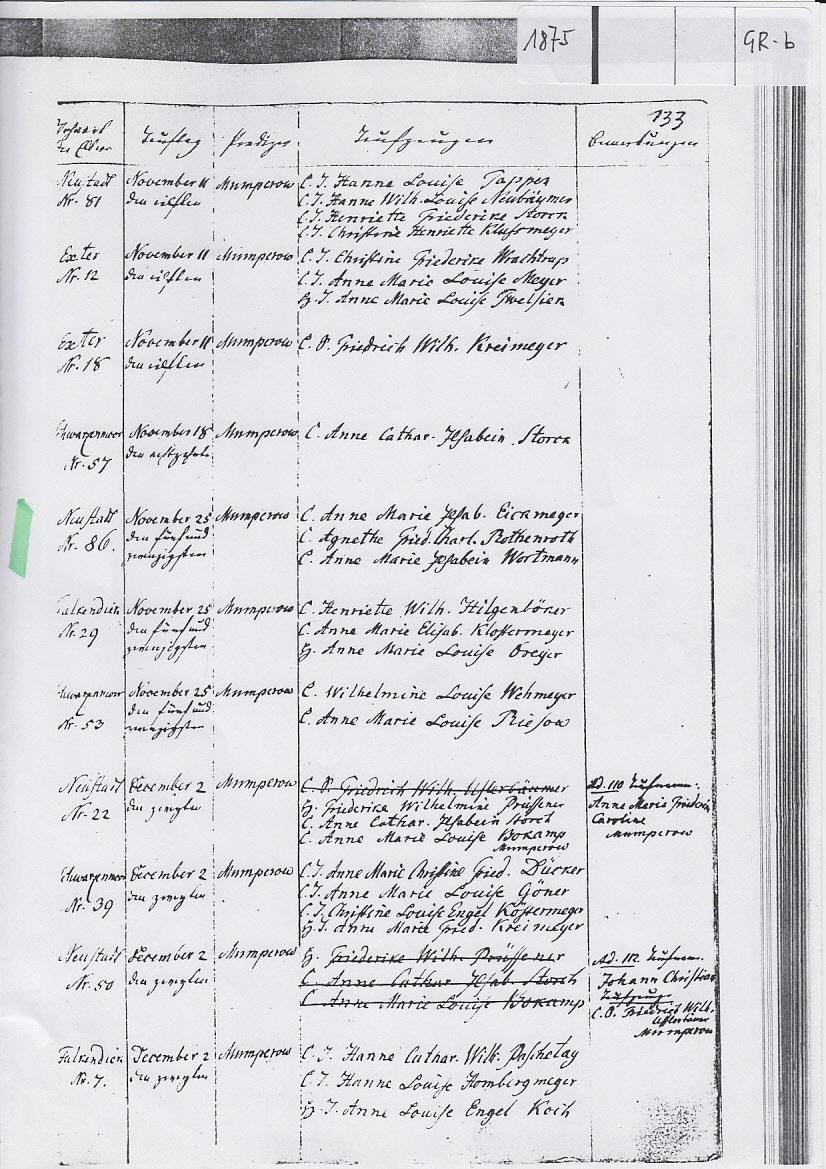 1875 GR-b
133
Tauftag Prediger Taufzeugen Bemerkungen
Neustadt November 11 Mumperow C. J. Hanne Louise Tappen
Nr. 81 den eilften C. J. Hanne Wilh. Louise Neubäumer
C. J. Henriette Friederike Storck
C. J. Christine Henriette Klussmeyer
Exter November 11 Mumperow C. J. Christine Friederike Wrachtrup
Nr. 12 den eilften C. J. Anne Marie Louise Meyer
H. J. Anne Marie Louise
Exter November 11 Mumperow C. O. Friedrich Wilh. Kreimeyer
Nr. 18 den eilften
Schwarzenmoor November 18 Mumperow C. Anne Cathar. Ilsabein Storck
Nr. 57 den achtzehnten
Neustadt November 25 Mumperow C. Anne Marie Ilsab. Eickmeyer
Nr. 86. den fünf und C. Agnethe Fried. Charl. Rothenroth
zwanzigsten C. Anne Marie Ilsabein Wortmann
Falkendiek November 25 Mumperow C. Henriette Wilh. Hilgenböker
Nr. 29 den fünf und C. Anne Marie Elisab. Klostermeyer
zwanzigsten H. Anne Marie Louise Dreyer
Schwarzenmoor November 25 Mumperow C. Wilhelmine Louise Wehmeyer
Nr. 53 den fünf und C. Anne Marie Louise Riesow
zwanzigsten
Neustadt December 2 Mumperow C. O. Friedrich Wilh. Usterbäumer Ad. 110 Taufnamen:
Nr. 22 den zweyten H. Friederike Wilhelmine Prüssener Anne Marie Friederike
C. Anne Cathar. Ilsabein Storck Caroline
C. Anne Marie Louise Bokamp Mumperow
Mumperow
Schwarzenmoor December 2 Mumperow C. J. Anne Marie Christine Fried. Dücker
Nr. 39 den zweyten C. J. Anne Marie Louise Göner
C. J. Christine Louise EngelKöstermeyer
H. J. Anna Marie Fried. Kreimeyer
Neustadt December 2 Mumperow H. Friederike Wilh. Prüssener Ad. 112 Taufnam.
Nr. 50 den zweyten C. Anne Cathar. Ilsab. Storck Johann Christian
C. Anne Marie Louise Bokamp Taufzeug.
C. O. Friedrich Wilh.
Usterbäumer
Mumperow
Falkendiek December 2 Mumperow C. J. Hanne Cathar. Wilh. Paschetag
Nr. 7. den zweyten C. J. Hanne Louise Hombergmeyer
H. J. Anne Louise Engel Koch